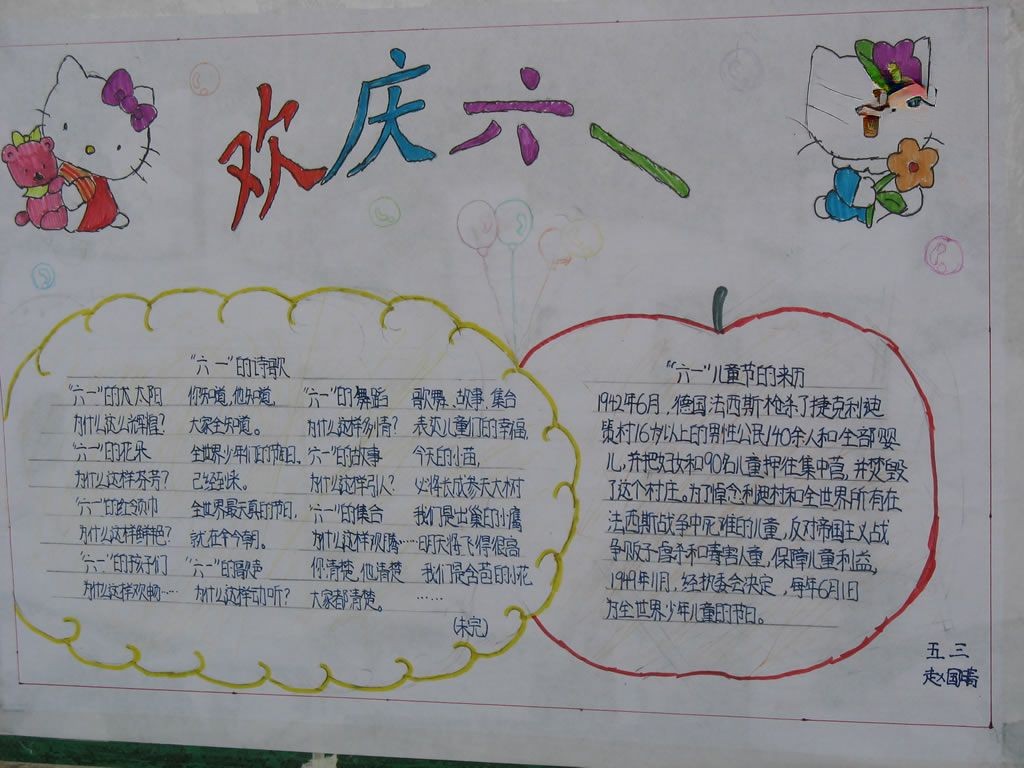 欢庆六一
“六一”的诗歌
“六一”的大太阳
为什么这么辉煌?
“六一”的花朵
为什么这样芬芳?
“六一”的红领巾
为什么这样鲜艳?
“六一”的孩子们
为什么这样欢畅……
你知道,他知道,
大家全知道。
全世界少年们的节日,
已经到来。
全世界最天真的节日,
就在今朝。
“六一”的歌声
为什么这样动听?
“六一”的舞蹈
为什么这样多情?
“六一”的故事
为什么这样引人?
“六一”的集合
为什么这样欢腾……
你清楚,他清楚
大家都清楚。
歌舞、故事、集合
表达儿童们的幸福,
今天的小苗,
必将长成参天大树
我们是出巢的小鹰
明天将飞得很高
我们是含苞的小花
……
(未完)
“六一”儿童节的来历
1942年6月,德国法西斯枪杀了捷克利迪
策村16岁以上的男性公民140余人和全部婴
儿,并把妇女和90名儿童押往集中营,并焚毁
了这个村庄。为了悼念利迪村和全世界所有在
法西斯战争中死难的儿童,反对帝国主义战
争贩子虐杀和毒害儿童,保障儿童利益,
1949年11月,经执委会决定,每年6月1日
为全世界少年儿童的节日。
五 三
赵国晴